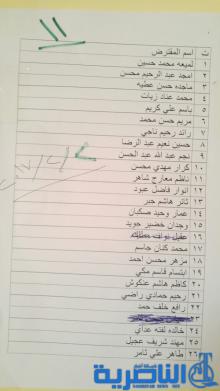 ١١
ت اسم المقترض
١ لميعه محمد حسين
٢ امجد عبد الرحيم محسن
٣ ماجده حسن عطيه
٤ محمد عناد زيات
٥ باسم علي كريم
٦ مريم حسن محمد
٧ رائد رحيم ناجي
٨ حسين نعيم عبد الرضا
٩ نجم عبد الله عبد الحسن
١٠ كرار مهدي محسن
١١ ناظم معارج شاهر
١٢ انوار فاضل عبود
١٣ ثائر هاشم جبر
١٤ عمار وحيد صكبان
١٥ وجدان خضير جويد
١٦ عقيل
١٧ محمد كنان جاسم
١٨ مزهر محسن احمد
١٩ ابتسام قاسم مكي
٢٠ كاظم هاشم عنكوش
٢١ رحيم حمادي راضي
٢٢ رافع خلف حمد
٢٣
٢٤ خالده لفته عداي
٢٥ مهند شريف عجيل
٢٦ طاهر علي ثامر
الناصرية